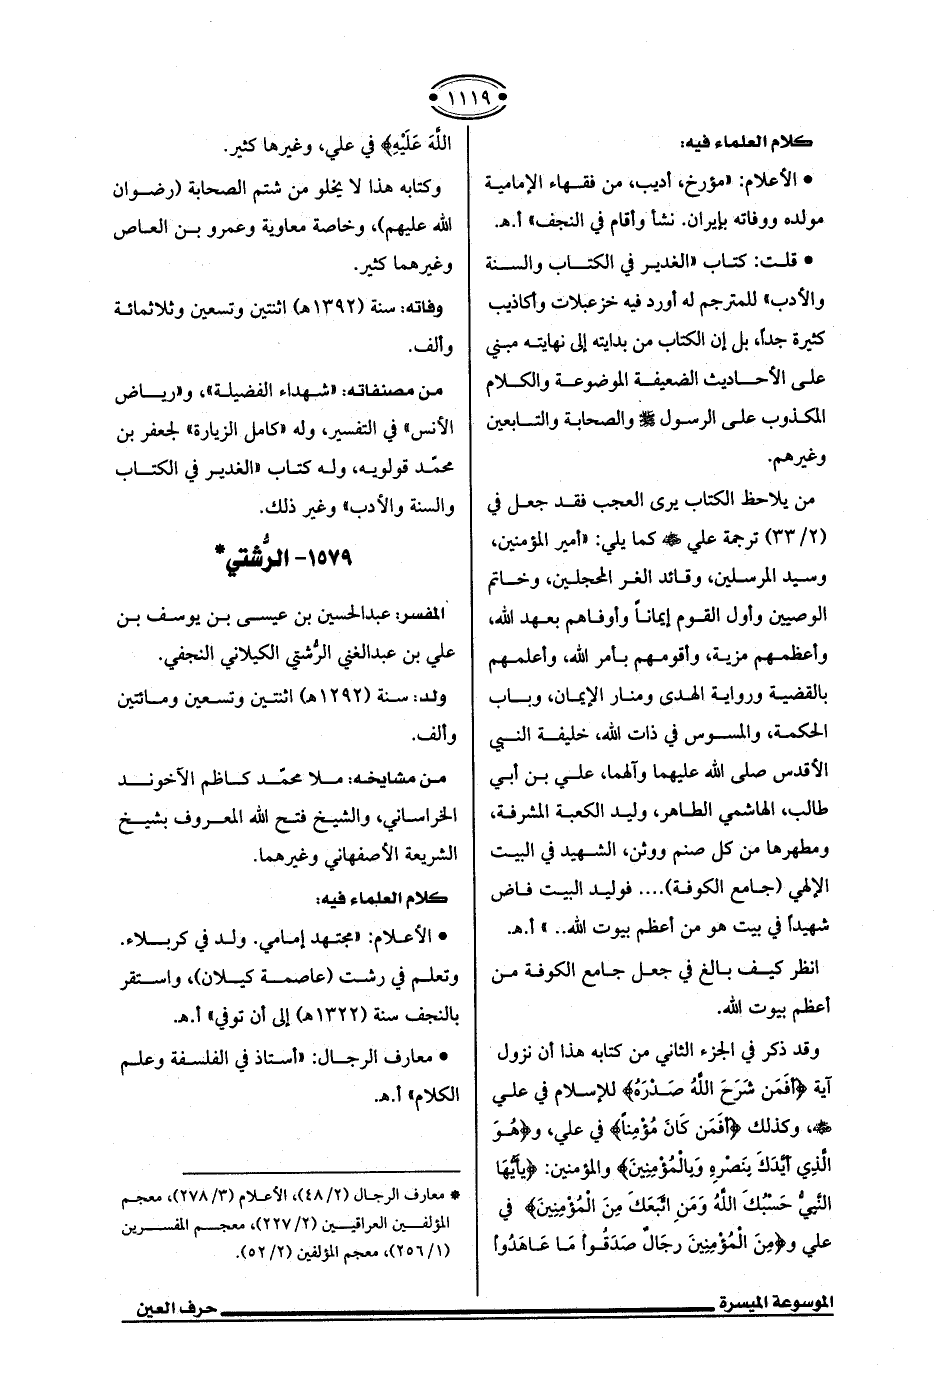 ١١١٩
كلام العلماء فيه:
• الأعلام: «مؤرخ، أديب، من فقهاء الإمامية
مولده ووفاته بإيران. نشأ وأقام في النجف» أ.هـ.
• قلت: كتاب «الغدير في الكتاب والسنة
والأدب» للمترجم له أورد فيه خزعبلات وأكاذيب
كثيرة جداً، بل إن الكتاب من بدايته إلى نهايته مبني
على الأحاديث الضعيفة الموضوعة والكلام
المكذوب على الرسول ﷺ والصحابة والتابعين
وغيرهم.
من يلاحظ الكتاب يرى العجب فقد جعل في
(٢/ ٣٣) ترجمة علي ﵁ كما يلي: «أمير المؤمنين،
وسيد المرسلين، وقائد الغر المحجلين، وخاتم
الوصيين وأول القوم إيماناً وأوفاهم بعهد الله،
وأعظمهم مزية، وأقومهم بأمر الله، وأعلمهم
بالقضية ورواية الهدى ومنار الإيمان، وباب
الحكمة، والمسوس في ذات الله، خليفة النبي
الأقدس صلى الله عليهما وآلهما، علي بن أبي
طالب، الهاشمي الطاهر، وليد الكعبة المشرفة،
ومطهرها من كل صنم ووثن، الشهيد في البيت
الإلهي (جامع الكوفة).... فوليد البيت فاض
شهيداً في بيت هو من أعظم بيوت الله.. » أ.هـ.
انظر كيف بالغ في جعل جامع الكوفة من
أعظم بيوت الله.
وقد ذكر في الجزء الثاني من كتابه هذا أن نزول
آية ﴿أَفَمَن شَرَحَ اللَّهُ صَدْرَهُ﴾ للإسلام في علي
﵁، وكذلك ﴿أَفَمَن كَانَ مُؤْمِناً﴾ في علي، و﴿هُوَ
الَّذِي أَيَّدَكَ بِنَصْرِهِ وَبِالْمُؤْمِنِينَ﴾ والمؤمنين: ﴿يَأَيُّهَا
النَّبِيُّ حَسْبُكَ اللَّهُ وَمَنِ اتَّبَعَكَ مِنَ الْمُؤْمِنِينَ﴾ في
علي و﴿مِنَ الْمُؤْمِنِينَ رِجَالٌ صَدَقُوا مَا عَاهَدُوا
اللَّهَ عَلَيْهِ﴾ في علي، وغيرها كثير.
وكتابه هذا لا يخلو من شتم الصحابة (رضوان
الله عليهم)، وخاصة معاوية وعمرو بن العاص
وغيرهما كثير.
وفاته: سنة (١٣٩٢هـ) اثنتين وتسعين وثلاثمائة
وألف.
من مصنفاته: «شهداء الفضيلة»، و«رياض
الأنس» في التفسير، وله «كامل الزيارة» لجعفر بن
محمّد قولويه، وله كتاب «الغدير في الكتاب
والسنة والأدب» وغير ذلك.
١٥٧٩- الرُّشتي*
المفسر: عبدالحسين بن عيسى بن يوسف بن
علي بن عبدالغني الرُّشتي الكيلاني النجفي.
ولد: سنة (١٢٩٢هـ) اثنتين وتسعين ومائتين
وألف.
من مشايخه: ملا محمّد كاظم الآخوند
الخراساني، والشيخ فتح الله المعروف بشيخ
الشريعة الأصفهاني وغيرهما.
كلام العلماء فيه:
• الأعلام: «مجتهد إمامي. ولد في كربلاء.
وتعلم في رشت (عاصمة كيلان)، واستقر
بالنجف سنة (١٣٢٢هـ) إلى أن توفي» أ.هـ.
• معارف الرجال: «أستاذ في الفلسفة وعلم
الكلام» أ.هـ.
* معارف الرجال (٢/ ٤٨)، الأعلام (٣/ ٢٧٨)، معجم
المؤلفين العراقيين (٢/ ٢٢٧)، معجم المفسرين
(١/ ٢٥٦)، معجم المؤلفين (٢/ ٥٢).
الموسوعة الميسرة
حرف العين